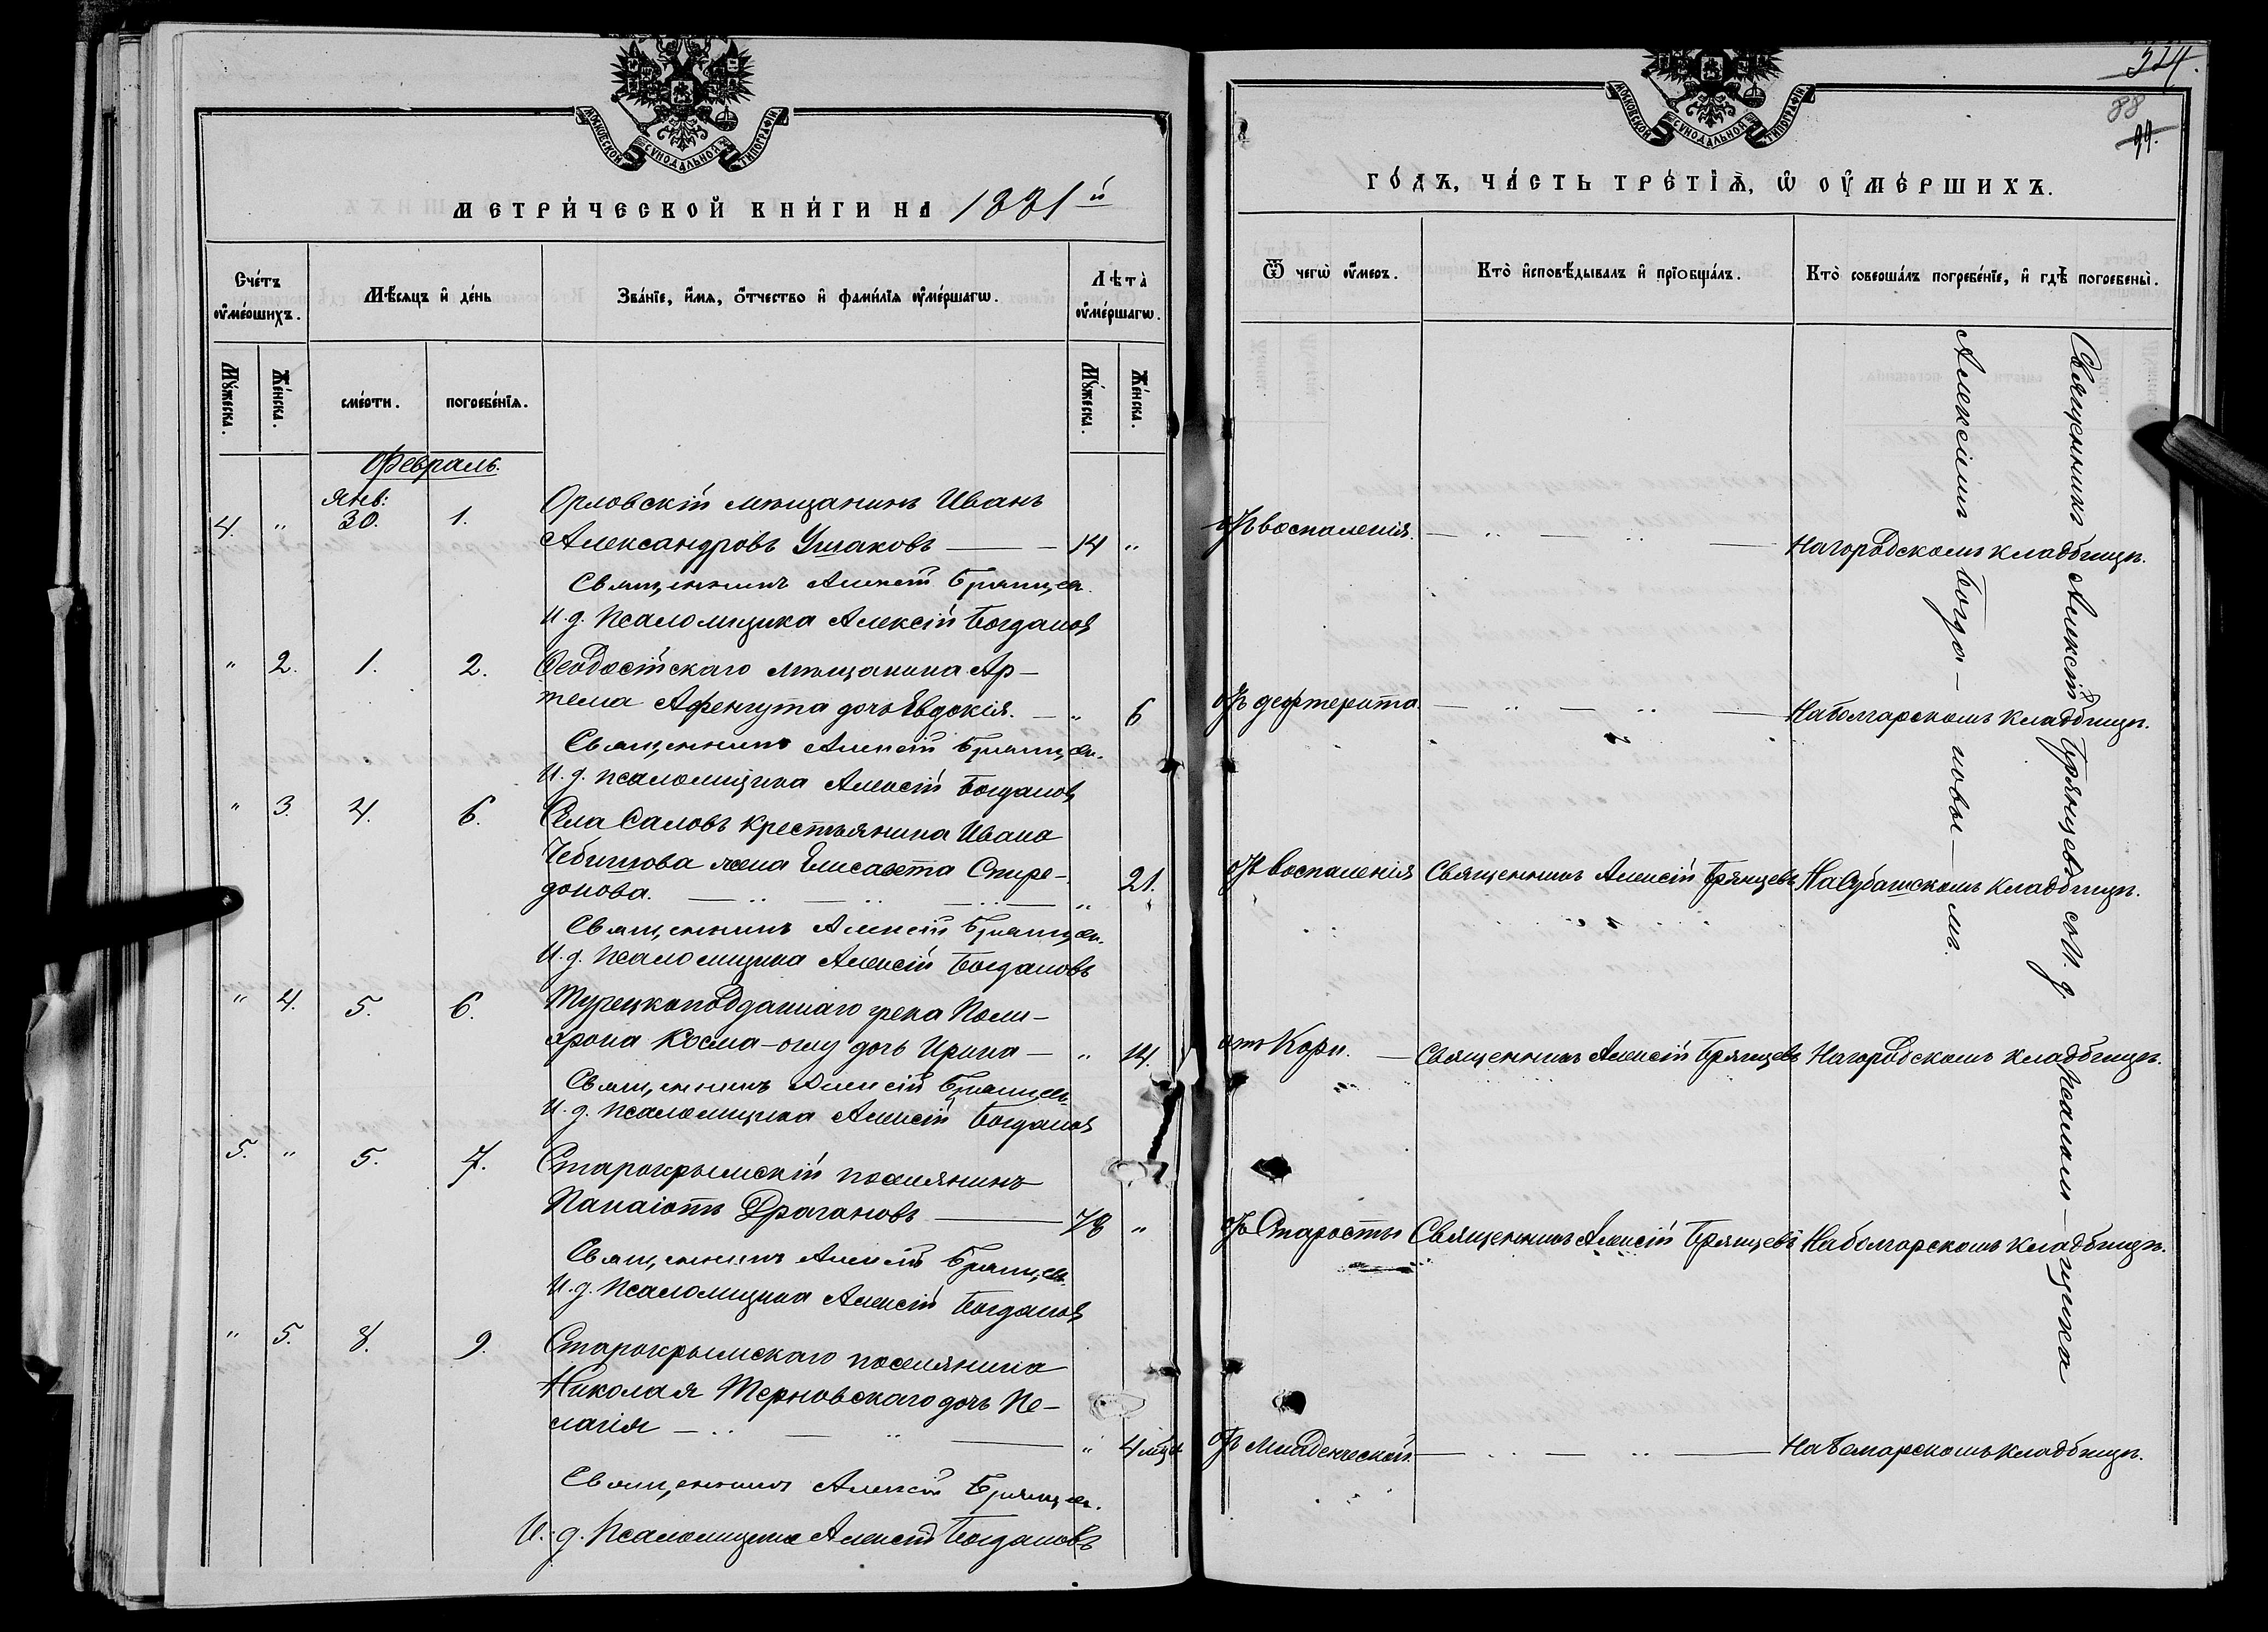 МОСКОВСКОЙ СѴНОДАЛЬНОЙ ТИПОГРАФІИ
МЕТРИ́ЧЕСКОЙ КНИ́ГИ НА 1881й
Сче́тъ ᲂумершихъ.
Мѣ́сяцъ и де́нь
Зва́нїе, и́мя, о́тчество и фами́лїя ᲂуме́ршагѡ.
Лѣта̀ ᲂуме́ршагѡ.
Мꙋ́жеска.
Же́нска.
сме́рти.
погребе́нїя.
Мꙋ́жеска.
Же́нска.
Февраль.
Янв:
4. " 30. 1. Орловскій мѣщанинъ Иванъ
Александровъ Ушаковъ — 14 "
Священникъ Алексій Брянцевъ.
И. д. Псаломщика Алексій Богдановъ
" 2. 1. 2. Ѳеодосійскаго мѣщанина Ар-
тема Афенгута дочь Евдокія. — " 6
Священникъ Алексій Брянцевъ.
И. д. псаломщика Алексій Богдановъ
" 3. 4. 6. Села Саловъ крестьянина Ивана
жена Елисавета Спире-
донова. — " 21.
Священникъ Алексій Брянцевъ.
И. д. Псаломщика Алексій Богдановъ
" 4. 5. 6. Турецкоподданнаго грека
Косма-оглу дочь Ирина — " 14.
Священникъ Алексій Брянцевъ
И. д. Псаломщика Алексій Богдановъ
5. " 5. 7. Старокрымскій поселянинъ
Панаіотъ Драгановъ — 78 "
Священникъ Алексій Брянцевъ.
И. д. Псаломщика Алексій Богдановъ
" 5. 8. 9. Старокрымскаго поселянина
Николая Терновскаго дочь Пе-
лагія — " 4 мѣц
Священникъ Алексій Брянцевъ.
И. д. Псаломщика Алексій Богдановъ
МОСКОВСКОЙ СѴНОДАЛЬНОЙ ТИПОГРАФІИ
324.
88
99.
ГО́ДЪ, ЧА́СТЬ ТРЕ́ТІѦ, Ѡ ОУМЕ́РШИХЪ.
Ѿ чегѡ̀ ᲂу́меръ.
Кто̀ исповѣ́дывалъ и прїобща́лъ.
Кто̀ соверша́лъ погребе́нїе, и гдѣ̀ погребены̀.
Отъ воспаленія. — На городскомъ кладбищѣ.
Отъ дефтерита — На болгарскомъ кладбищѣ.
Отъ воспаленія Священникъ Алексій Брянцевъ На Субашскомъ кладбищѣ.
отъ Кори. — Священникъ Алексій Брянцевъ На городскомъ кладбищѣ.
Отъ Старости Священникъ Алексій Брянцевъ На болгарскомъ кладбищѣ.
Отъ Младенческой. — На болгарскомъ кладбищѣ.
Священникъ Алексій Брянцевъ со И. д. Псалом-щика
Алексіемъ Богда-новы-мъ.